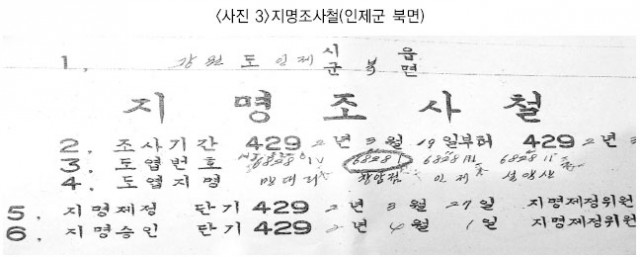 <사진 3>지명조사철(인제군 북면)
1. 강원도 인제 시군 북 읍면
지명조사철
2. 조사기간 429 2년 3월 19일부터 429 2년
3. 도엽번호 6828 IV 6828 I 6828 III 6828 II
4. 도엽지명 인제 설악산
5. 지명제정 단기 429 2년 3월 27일 지명제정위원
6. 지명승인 단기 429 2년 4월 1일 지명제정위원